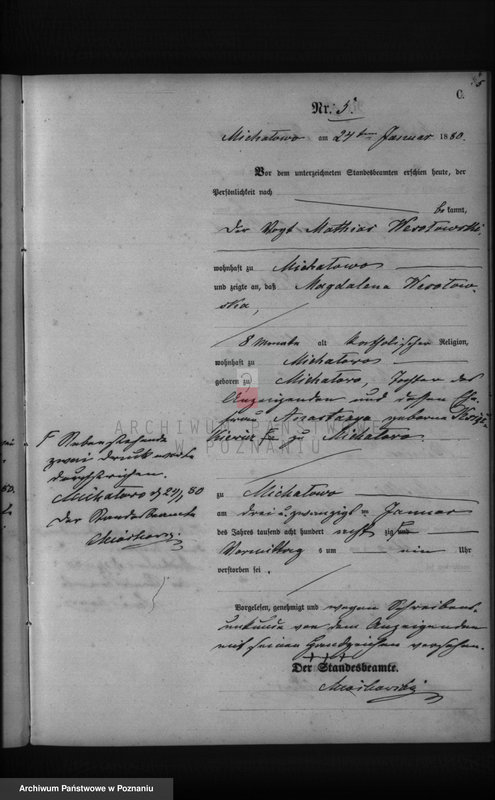 C.
Nr. 5.
Michałowo am 24ten Januar 1880.
Vor dem unterzeichneten Standesbeamten erschien heute, der
Persönlichkeit nach
bekannt,
der Vogt Mathias Wesołowski,
wohnhaft zu Michałowo
und zeigte an, daß Magdalena Wesołow-
ska,
8 Monate alt katholischer Religion,
wohnhaft zu Michałowo
geboren zu Michałowo, Tochter des
Anzeigenden und dessen Ehe-
frau Anastasya geborne
zu Michałowo
zu Michałowo
am drei u. zwanzigsten Januar
des Jahres tausend acht hundert acht zig
Vormittag s um ein Uhr
verstorben sei.
Vorgelesen, genehmigt und wegen Schreibens-
unkunde von dem Anzeigenden
mit seinen Handzeichen versehen.
+++
Der Standesbeamte.
F Nebenstehende
zwei Druckworte
durchstrichen.
Michałowo d 24/1 80
Der Standesbeamte
ARCHIWUM PAŃSTWOWE
W POZNANIU
Archiwum Państwowe w Poznaniu